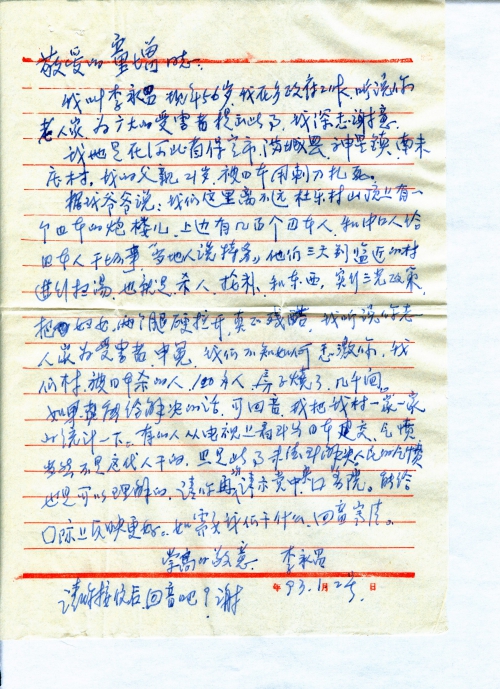 敬爱的童增同志:
我叫李永昌 现年56岁,我在乡政府工作 听说你
老人家 为广大的受害者提出此事,我深志谢意,
我也是在河北省保定市,满城县,神星镇,南来
庄村,我的父亲21岁,被日军用刺刀扎死。
据我爷爷说:我们这里离不远 杜乐村山顶上有一
个日本的炮楼儿,上边有几百个日本人,和中国人给
日本人干坏事《当地人说特务》他们三天到临近的村
进行扫汤,也就是杀人,抢利,和东西,实行三光政策,
把妇女,两个腿硬拉开,真正残酷,我听说你老
人家为受害者申冤,我们不知如何感激你,我
们村,被日本杀的人,100多人,房子烧了,几千间。
如果想给解决的话,可回音,我把我村一家一家
的统计一下。有的人从电视上看到当日本建交,气愤
当然不是这代人干的,但是
也是可以理解的,请你再请示党中央国务院。能给
国际上反映更好。如需我详细干什么,回音寄信。
崇高的敬意 李永昌
年 93.1月2号 日
请你接信后,回音吧?谢